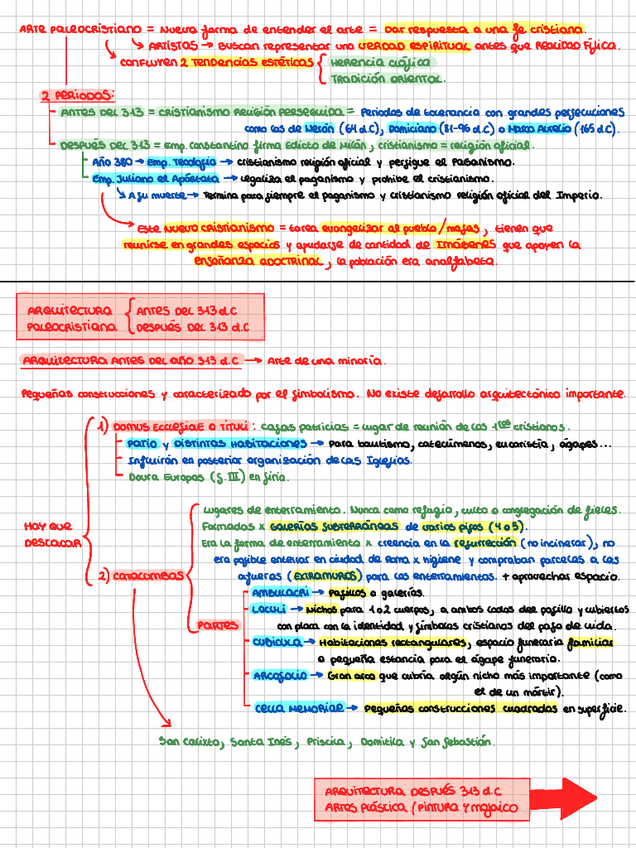 ARTE PALEOCRISTIANO = Nueva forma de entender el arte = Dar respuesta a una fe cristiana.
ARTISTAS → Buscan representar una VERDAD ESPIRITUAL antes que Realidad Física.
CONFLUYEN 2 TENDENCIAS ESTÉTICAS { HERENCIA CLÁSICA
TRADICIÓN ORIENTAL.
2 PERIODOS:
ANTES DEL 313 = CRISTIANISMO RELIGIÓN PERSEGUIDA = Periodos de tolerancia con grandes persecuciones
como las de Nerón (64 d.C), Domiciano (81-96 d.C) o Marco Aurelio (165 d.C).
DESPUÉS DEL 313 = emp. Constantino firma Edicto de Milán, cristianismo = religión oficial.
Año 380 → Emp. Teodosio → cristianismo religión oficial y persigue el Paganismo.
Emp. Juliano el Apóstata → Legaliza el paganismo y prohíbe el cristianismo.
A su muerte → Termina para siempre el paganismo y cristianismo religión oficial del Imperio.
Este nuevo cristianismo = tarea evangelizar al pueblo/masas, tienen que
reunirse en grandes espacios y ayudarse de cantidad de Imágenes que apoyen la
enseñanza adoctrinal, la población era analfabeta.
ARQUITECTURA { ANTES DEL 313 d.C
PALEOCRISTIANA DESPUÉS DEL 313 d.C
ARQUITECTURA ANTES DEL AÑO 313 d.C → Arte de una minoría.
Pequeñas construcciones y caracterizado por el simbolismo. No existe desarrollo arquitectónico importante.
HAY QUE
DESTACAR
1) DOMUS ECCLESIAE O TITULI: Casas patricias = lugar de reunión de los 1ros cristianos.
PATIO y DISTINTAS HABITACIONES → Para bautismo, catecúmenos, eucaristía, ágapes...
Influirán en posterior organización de las Iglesias.
Doura Europas (S. III) en Siria.
2) CATACUMBAS
Lugares de enterramiento. Nunca como refugio, culto o congregación de fieles.
Formadas x GALERÍAS SUBTERRÁNEAS de varios pisos (4 o 5).
Era la forma de enterramiento x creencia en la resurrección (no incinerar), no
era posible enterrar en ciudad de Roma x higiene y compraban parcelas a las
afueras (EXTRAMUROS) para los enterramientos. + aprovechar espacio.
PARTES
AMBULACRI → Pasillos o galerías.
LOCULI → Nichos para 1 o 2 cuerpos, a ambos lados del pasillo y cubiertos
con placa con la identidad y símbolos cristianos del paso de vida.
CUBICULA → Habitaciones rectangulares, espacio funerario familiar
o pequeña estancia para el ágape funerario.
ARCOSOLIO → Gran arco que cubría algún nicho más importante (como
el de un mártir).
CELLA MEMORIAE → Pequeñas construcciones cuadradas en superficie.
San Calixto, Santa Inés, Priscila, Domitila y San Sebastián.
ARQUITECTURA DESPUÉS 313 d.C
ARTES PLÁSTICA / PINTURA Y MOSAICO